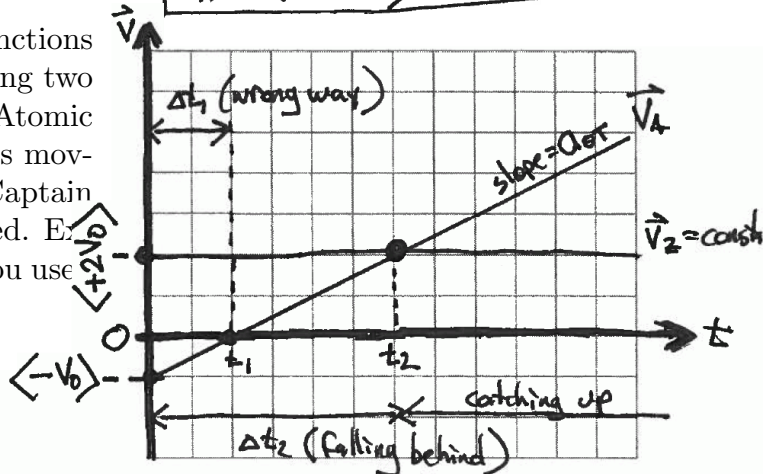 nctions
ng two
Atomic
s mov-
Captain
ed. Ex
ou use
V
Δt₁ (wrong way)
V_A
slope = a
V₂ = const
⟨+2V₀⟩
0
t₁
t₂
t
⟨-V₀⟩
catching up
Δt₂ (falling behind)